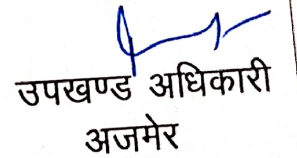 उपखण्ड अधिकारी
अजमेर